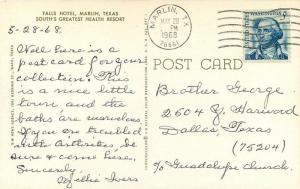 FALLS HOTEL, MARLIN, TEXAS
SOUTH'S GREATEST HEALTH RESORT
5-28-68.
Well here is a
post card for your
collection. This
is a nice little
town and the
baths are marvelous
If you are troubled
with Arthritis, be
sure & come here.
Sincerely,
Nellie Ivers
MARLIN, TX
MAY 28
PM
1968
76661
WASHINGTON 5¢
POST CARD
Brother George
2604 N. Harwood
Dallas, Texas
(75204)
c/o Guadalupe Church.